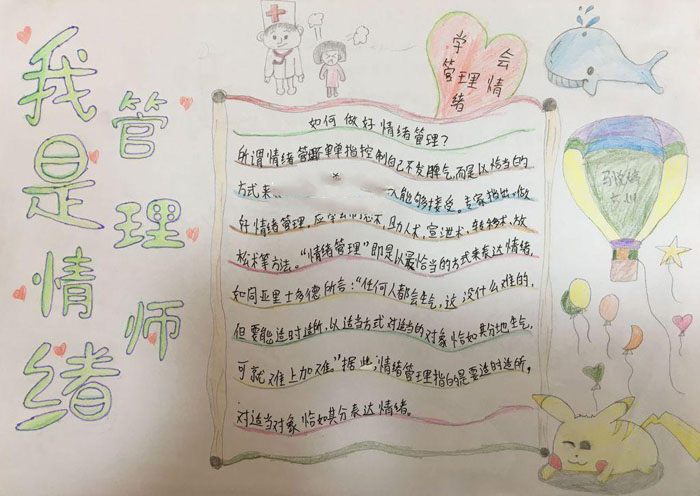 我是情绪
管理师
学会
管理情
绪
如何做好情绪管理?
所谓情绪管理单单指控制自己不发脾气,而是以恰当的
方式来 人能够接受。专家指出,做
好情绪管理, 助人术,宣泄术,转移术,放
松术等方法。“情绪管理”即是以最恰当的方式来表达情绪,
如同亚里士多德所言:“任何人都会生气,这没什么难的,
但要能适时适所,以适当方式对适当的对象恰如其分地生气,
可就难上加难。”据此,情绪管理指的是要适时适所,
对适当对象恰如其分表达情绪。